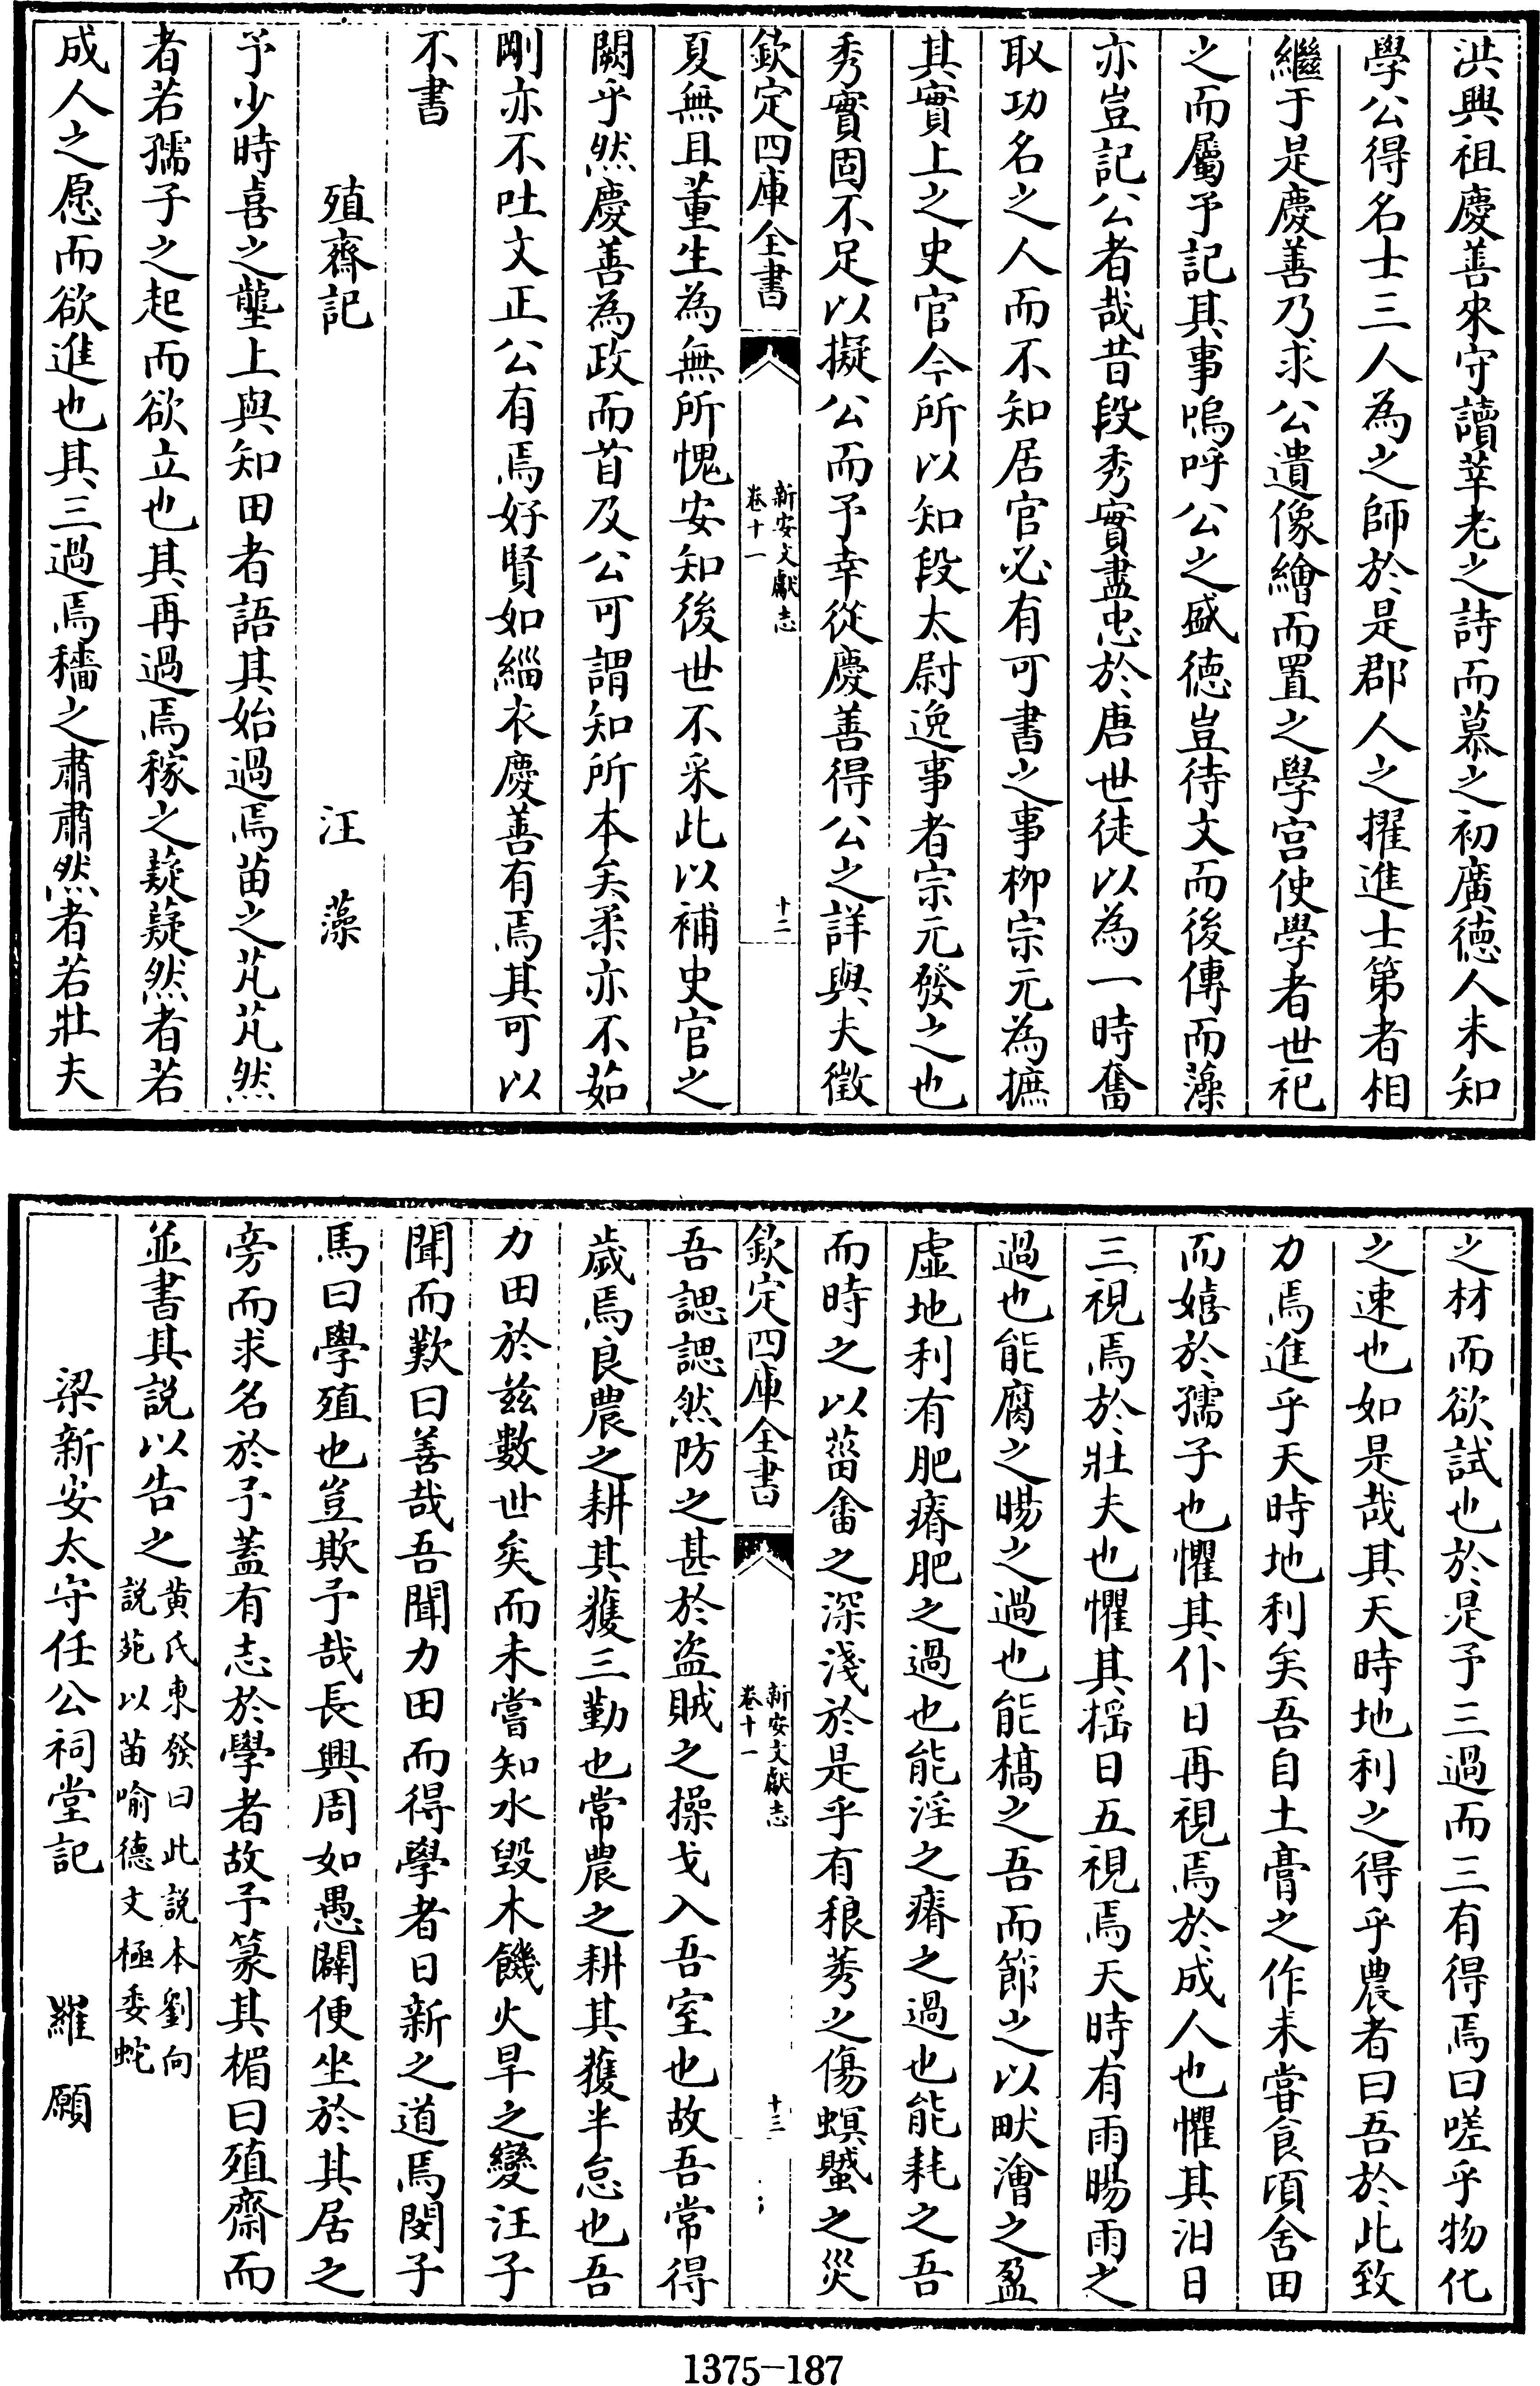 洪興祖慶善來守讀莘老之詩而慕之初廣德人未知
學公得名士三人為之師於是郡人之擢進士第者相
繼于是慶善乃求公遺像繪而置之學宮使學者世祀
之而屬予記其事嗚呼公之盛德豈待文而後傳而藻
亦豈記公者哉昔段秀實盡忠於唐世徒以為一時奮
取功名之人而不知居官必有可書之事柳宗元為摭
其實上之史官今所以知段太尉逸事者宗元發之也
秀實固不足以擬公而予幸從慶善得公之詳與夫徵
欽定四庫全書
新安文獻志
卷十一
十二
夏無且董生為無所愧安知後世不采此以補史官之
闕乎然慶善為政而首及公可謂知所本矣柔亦不茹
剛亦不吐文正公有焉好賢如緇衣慶善有焉其可以
不書
殖齋記 汪藻
予少時喜之壟上與知田者語其始過焉苗之芃芃然
者若孺子之起而欲立也其再過焉稼之薿薿然者若
成人之愿而欲進也其三過焉穡之肅肅然者若壯夫
之材而欲試也於是予三過而三有得焉曰嗟乎物化
之速也如是哉其天時地利之得乎農者曰吾於此致
力焉進乎天時地利矣吾自土膏之作未嘗食頃舍田
而嬉於孺子也懼其仆日再視焉於成人也懼其汩日
三視焉於壯夫也懼其揺日五視焉天時有雨暘雨之
過也能腐之暘之過也能槁之吾而節之以畎澮之盈
虛地利有肥瘠肥之過也能淫之瘠之過也能耗之吾
而時之以菑畬之深淺於是乎有稂莠之傷螟蟊之災
欽定四庫全書
新安文獻志
卷十一
十三
吾諰諰然防之甚於盜賊之操戈入吾室也故吾常得
歲焉良農之耕其獲三勤也常農之耕其獲半怠也吾
力田於兹數世矣而未嘗知水毀木饑火旱之變汪子
聞而歎曰善哉吾聞力田而得學者日新之道焉閔子
馬曰學殖也豈欺予哉長興周如愚闢便坐於其居之
旁而求名於予蓋有志於學者故予篆其楣曰殖齋而
並書其説以告之 黄氏東發曰此説本劉向
説苑以苗喻德文極委蛇
梁新安太守任公祠堂記 羅願
1375-187